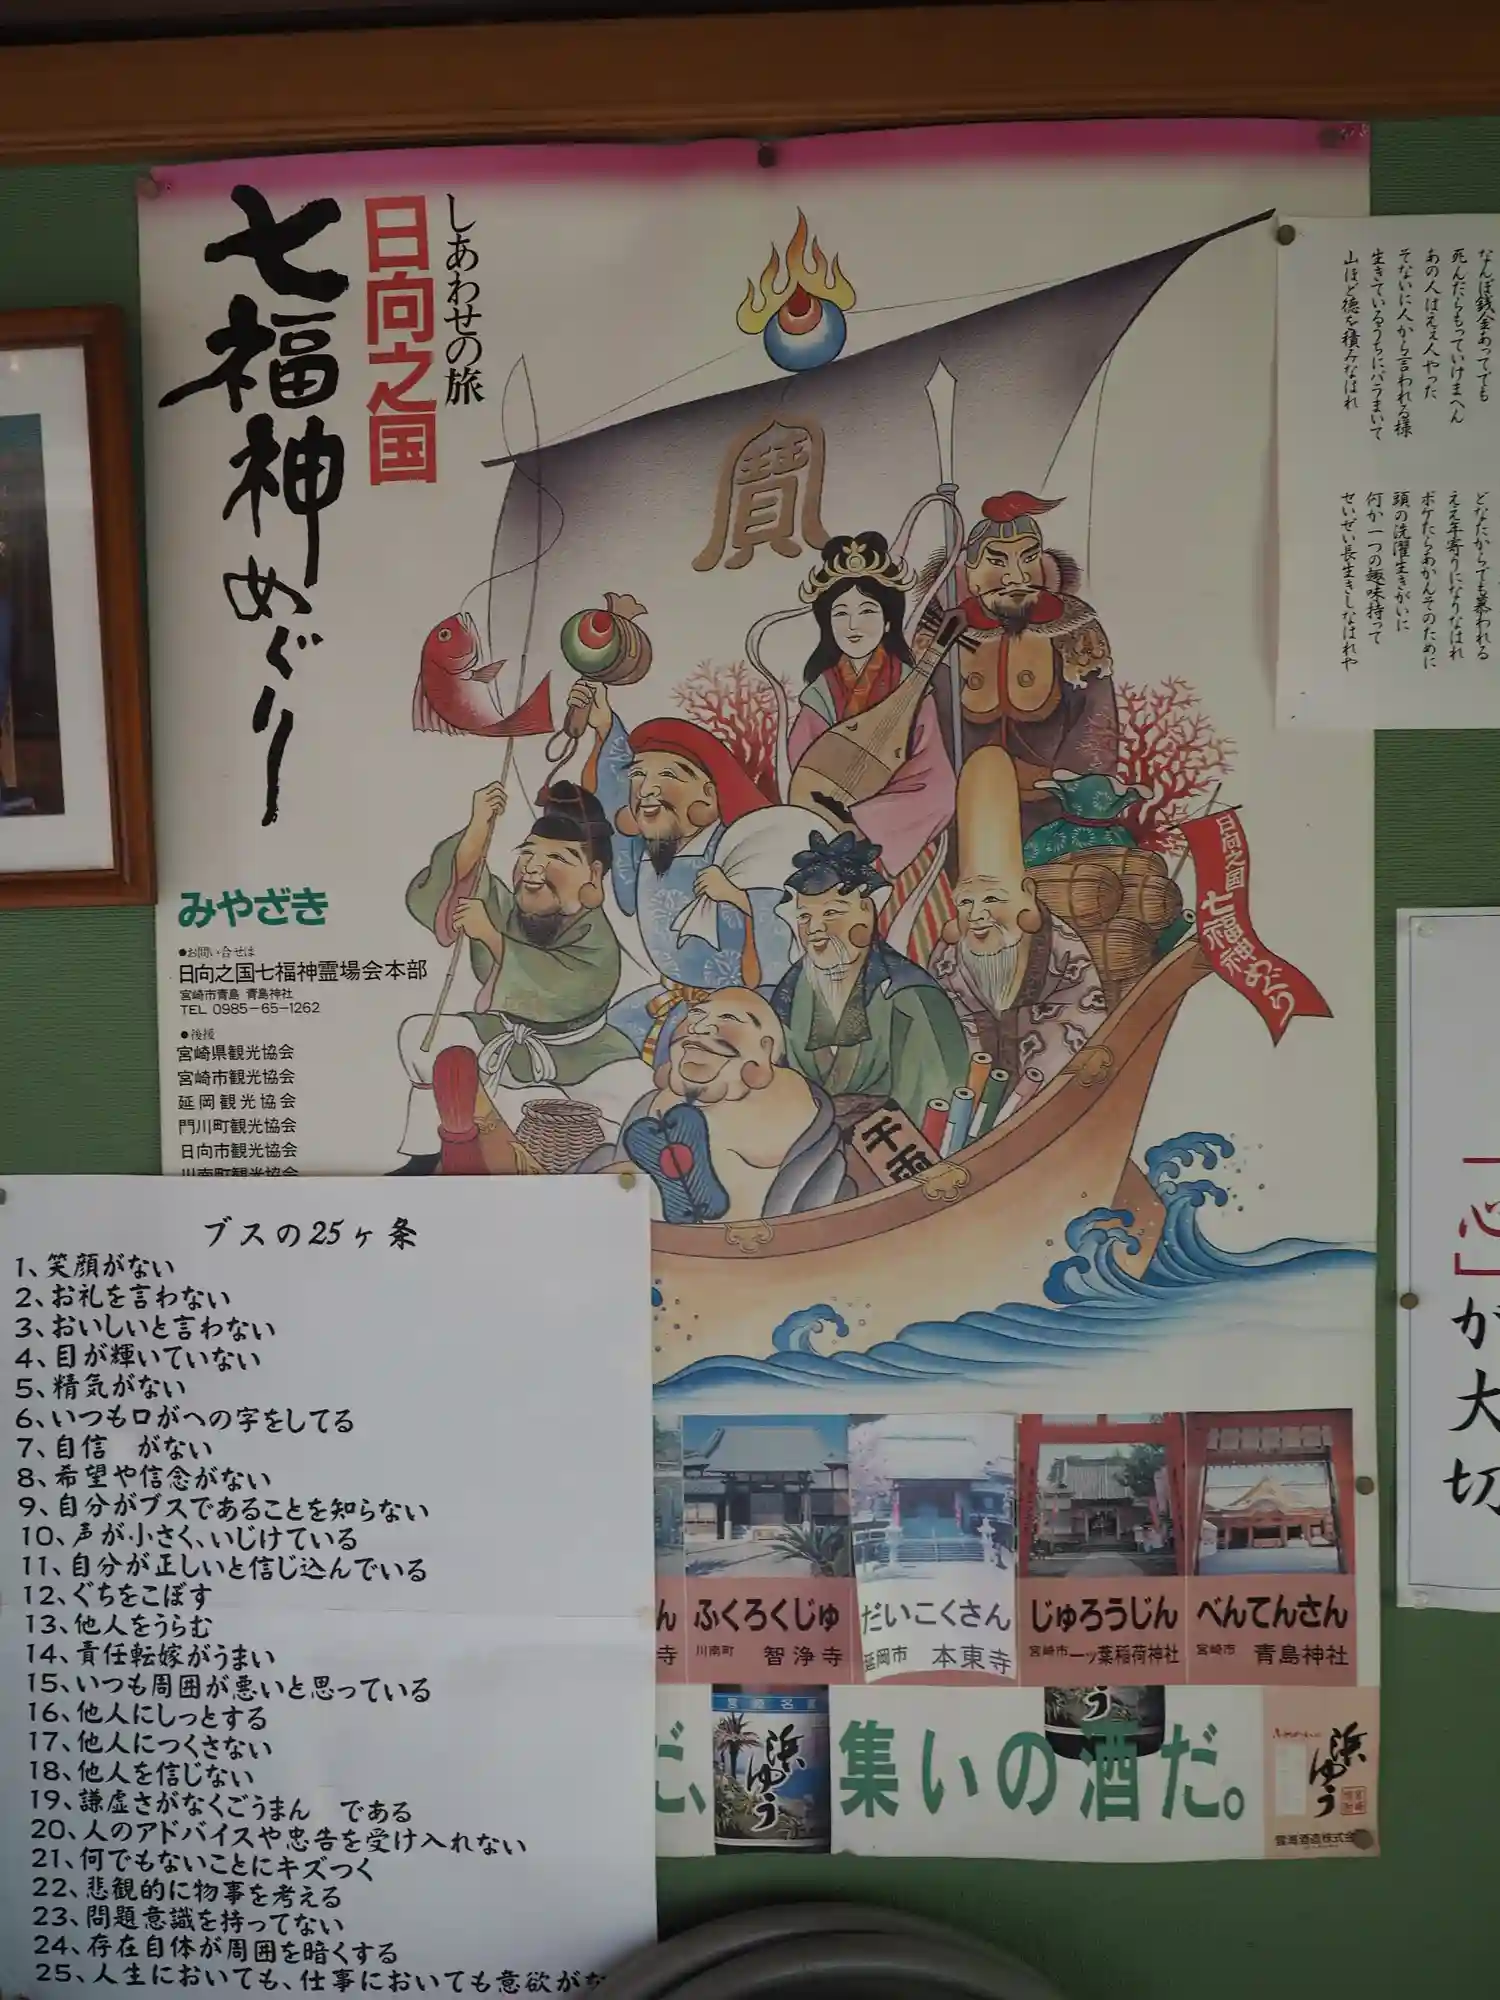 しあわせの旅
日向之国
七福神めぐり
寶
みやざき
●お問い合せは
日向之国七福神霊場会本部
宮崎市青島 青島神社
TEL 0985-65-1262
●後援
宮崎県観光協会
宮崎市観光協会
延岡観光協会
門川町観光協会
日向市観光協会
川南町観光協会
日向之国
七福神めぐり
千両
ん
寺
ふくろくじゅ
川南町 智浄寺
だいこくさん
延岡市 本東寺
じゅろうじん
宮崎市 一ッ葉稲荷神社
べんてんさん
宮崎市 青島神社
だ、
浜ゆう
集いの酒だ。
浜ゆう
雲海酒造株式会
なんぼ銭金あってでも
死んだらもっていけまへん
あの人はええ人やった
そないに人から言われる様
生きているうちにバラまいて
山ほど徳を積みなはれ
どなたからでも慕われる
ええ年寄りになりなはれ
ボケたらあかんそのために
頭の洗濯生きがいに
何か一つの趣味持って
せいぜい長生きしなはれや
「心」が大切
ブスの25ヶ条
1、笑顔がない
2、お礼を言わない
3、おいしいと言わない
4、目が輝いていない
5、精気がない
6、いつも口がへの字をしてる
7、自信　がない
8、希望や信念がない
9、自分がブスであることを知らない
10、声が小さく、いじけている
11、自分が正しいと信じ込んでいる
12、ぐちをこぼす
13、他人をうらむ
14、責任転嫁がうまい
15、いつも周囲が悪いと思っている
16、他人にしっとする
17、他人につくさない
18、他人を信じない
19、謙虚さがなくごうまん　である
20、人のアドバイスや忠告を受け入れない
21、何でもないことにキズつく
22、悲観的に物事を考える
23、問題意識を持ってない
24、存在自体が周囲を暗くする
25、人生においても、仕事においても意欲がな